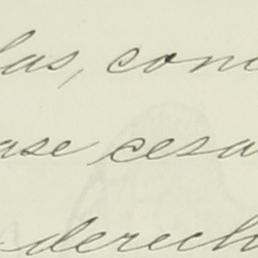 las, con
ase cesa
derech